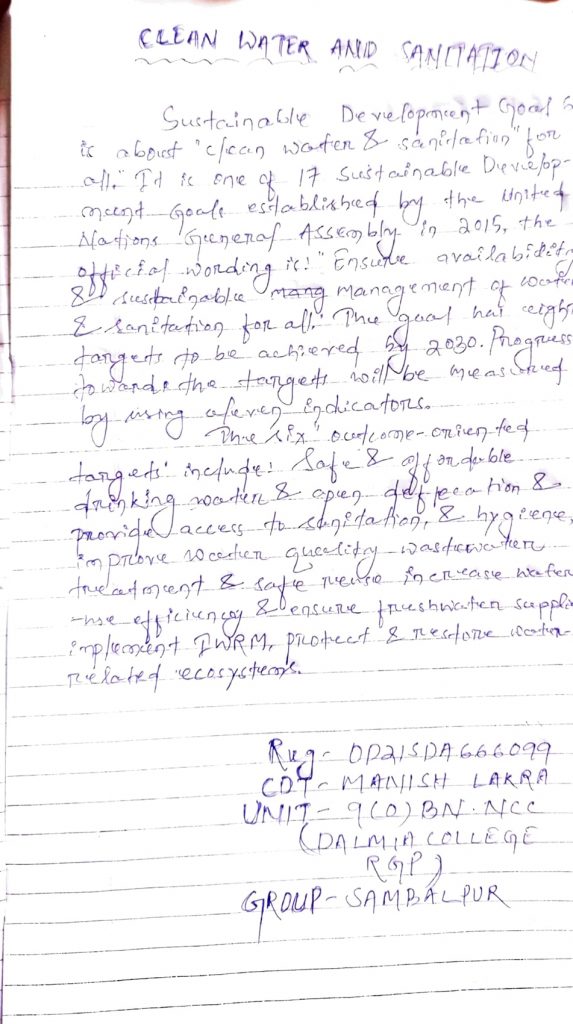 CLEAN WATER AND SANITATION
Sustainable Development Goal 6
is about "clean water & sanitation" for
all." It is one of 17 Sustainable Develop-
ment Goals established by the United
Nations General Assembly in 2015, the
official wording is: "Ensure availability
& sustainable mang management of water
& sanitation for all." The goal has eight
targets to be achieved by 2030. Progress
towards the targets will be measured
by using eleven indicators.
The six "outcome-oriented
targets" include: Safe & affordable
drinking water & open deffecation &
provide access to sanitation, & hygiene,
improve water quality wastewater
treatment & safe reuse increase water
-use efficiency & ensure freshwater supplie
implement IWRM, protect & restore water
related ecosystems.
Reg- OD21SDA666099
CDT- MANISH LAKRA
UNIT- 9(O) BN. NCC
(DALMIA COLLEGE
RGP)
GROUP- SAMBALPUR